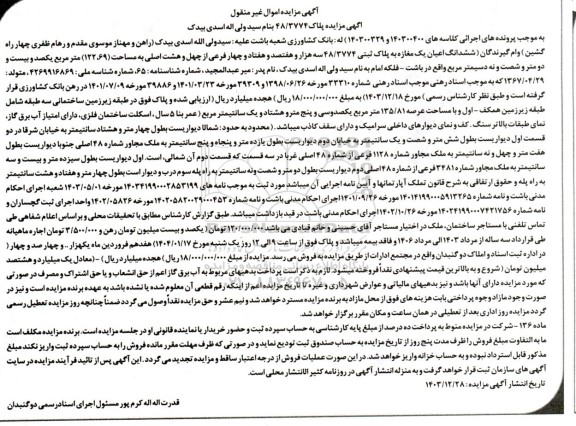 آگهی مزایده اموال غیر منقول
آگهی مزایده پلاک ۴۸/۳۷۷۴ بنام سید ولی اله اسدی بیدک
به موجب پرونده های اجرائی کلاسه های ۱۴۰۳۰۰۴۰۰ و ۱۴۰۳۰۰۳۳۹ له: بانک کشاورزی شعبه باشت علیه: سیدولی الله اسدی بیدک (راهن و مهناز موسوی مقدم و رهام ظفری چهار راه
گشین) وام گیرندگان (ششدانگ اعیان یک مغازه به پلاک ثبتی ۴۸/۳۷۷۴ سه هزار و هفتصد و هفتاد و چهار فرعی از چهل و هشت اصلی به مساحت (۱۲۲,۶۹) متر مربع یکصد و بیست و
دو متر و شصت و نه دسیمتر مربع واقع در باشت - فلکه امام به نام سید ولی اله اسدی بیدک، نام پدر: میر عبدالمجید، شماره شناسنامه: ۶۵، شماره شناسه ملی: ۴۲۶۹۹۱۶۸۶۹، متولد:
۱۳۶۷/۰۴/۲۹ که به موجب اسناد رهنی موجب اسناد رهنی شماره ۳۳۳۱۰ مورخه ۱۳۹۸/۰۶/۲۶ ۳۹۳۰۹ مورخه ۱۴۰۱/۰۳/۲۳ ۳۹۸۸۶ مورخه ۱۴۰۱/۰۷/۰۹ در رهن بانک کشاورزی قرار
گرفته است و طبق نظر کارشناس رسمی) مورخ ۱۴۰۳/۱۲/۱۸ به مبلغ ۱۸/۰۰۰/۰۰۰/۰۰۰ ریال (هجده میلیارد ریال) ارزیابی شده و پلاک فوق در طبقه زیرزمین ساختمانی سه طبقه شامل
طبقه زیرزمین همکف - اول و با مساحت عرصه ۱۳۵/۸۱ متر مربع یکصدوسی و پنج مترو هشتاد و یک سانتیمتر مربع (عمر بنا ۵ سال، اسکلت ساختمان فلزی، دارای امتیاز آب برق گاز،
نمای طبقات بالاتر سنگ، کف و نمای دیوارهای داخلی سرامیک و دارای سقف کاذب میباشد. (محدوده به حدود: شمالا دیواریست بطول چهار متر و هشتاد سانتیمتر به خیابان شرقا در دو
قسمت اول دیواریست بطول شش متر و شصت و یک سانتیمتر به خیابان دوم دیواریست بطول یازده متر و پنجاه و پنج سانتیمتر به ملک مجاور شماره ۴۸ اصلی جنوبا دیواریست بطول
هفت متر و چهل و نه سانتیمتر به ملک مجاور شماره ۱۱۲۸ فرعی از شماره ۴۸ اصلی غربا در سه قسمت که قسمت دوم آن شمالی، است. اول دیواریست بطول سیزده متر و بیست و سه
سانتیمتر به ملک مجاور شماره ۳۴۸۱ فرعی از شماره ۴۸ اصلی دوم دیواریست بطول دو متر و شصت ونه سانتیمتر به راه پله سوم درب و دیوار است بطول چهار متر و هفتاد و هشت سانتیمتر
به راه پله و حقوق ارتفاقی به شرح قانون تملک آپارتمانها و آیین نامه اجرایی آن میباشد مورد ثبت به موجب نامه های ۱۴۰۳۴۱۹۹۰۰۰۲۸۵۳۱۹۹ مورخه ۱۴۰۳/۰۵/۰۱ شعبه اجرای احکام
مدنی باشت و نامه شماره ۱۴۰۱۴۱۹۹۰۰۰۵۹۱۳۲۶۵ مورخه ۱۴۰۱/۰۹/۲۶ اجرای احکام مدنی باشت و نامه شماره ۱۴۰۲۰۵۸۲۰۰۳۹۰۰۰۴۵۳ مورخه ۱۴۰۲/۰۵/۸۲۶ واحد اجرای ثبت گچساران و
نامه شماره ۱۴۰۲۴۱۹۹۰۰۰۷۴۲۱۷۵۶ مورخه ۱۴۰۲/۱۰/۲۶ اجرای احکام مدنی باشت در قید بازداشت میباشد. طبق گزارش کارشناس مطابق با تحقیقات محلی و براساس اعلام شفاهی طی
تماس تلفنی با مستاجر ساختمان، ملک در اختیار مستاجر آقای حسینی و خانم قبادی می باشد) - ۱۲۰/۰۰۰/۰۰۰ تومان (یکصد و بیست میلیون تومان رهن و ۳/۵۰۰/۰۰۰ تومان اجاره ماهیانه
طی قرارداد سه ساله از مرداد ۱۴۰۳ الی مرداد ۱۴۰۶ و فاقد بیمه میباشد و پلاک فوق از ساعت ۹ الی ۱۲ روز یک شنبه مورخ ۱۴۰۴/۰۱/۱۷ هفدهم فروردین ماه یکهزار .. و چهار صد و چهار (
در اداره ثبت اسناد و املاک دو گنبدان واقع در مجتمع ادارات از طریق مزایده به فروش می رسد. مزایده از مبلغ ۱۸/۰۰۰/۰۰۰/۰۰۰ ریال (هجده میلیارد ریال) - (معادل یک میلیارد و هشتصد
میلیون تومان (شروع و به بالاترین قیمت پیشنهادی نقداً فروخته میشود لازم به ذکر است پرداخت بدهیهای مربوط به آب برق گاز اعم از حق انشعاب و یا حق اشتراک و مصرف در صورتی
که مورد مزایده دارای آنها باشد و نیز بدهیهای مالیاتی و عوارض شهرداری و غیره تا تاریخ مزایده اعم از اینکه رقم قطعی آن معلوم شده یا نشده باشد به عهده برنده مزایده است و نیز در
صورت وجود مازاد وجوه پرداختی بابت هزینه های فوق از محل مازاد به برنده مزایده مسترد خواهد شد و نیم عشر و حق مزایده نقداً وصول می گردد ضمناً چنانچه روز مزایده تعطیل رسمی
گردد مزایده روز اداری بعد از تعطیلی در همان ساعت و مکان مقرر برگزار خواهد شد.
ماده ۱۳۶ - شرکت در مزایده منوط به پرداخت ده درصد از مبلغ پایه کارشناسی به حساب سپرده ثبت و حضور خریدار یا نماینده قانونی او در جلسه مزایده است. برنده مزایده مکلف است
ما به التفاوت مبلغ فروش را ظرف مدت پنج روز از تاریخ مزایده به حساب صندوق ثبت تودیع نماید و در صورتی که ظرف مهلت مقرر مانده فروش را به حساب سپرده ثبت واریز نکند مبلغ
مذکور قابل استرداد نبوده و به حساب خزانه واریز خواهد شد. در این صورت عملیات فروش از درجه اعتبار ساقط و مزایده تجدید می گردد. این آگهی پس از تائید فرآیند مزایده در سایت
آگهی های سازمان ثبت قرار خواهد گرفت و به منزله انتشار آگهی در روزنامه کثیر الانتشار محلی است.
تاریخ انتشار آگهی مزایده: ۱۴۰۳/۱۲/۲۸
قدرت اله اله کرم پور مسئول اجرای اسناد رسمی دوگنبدان